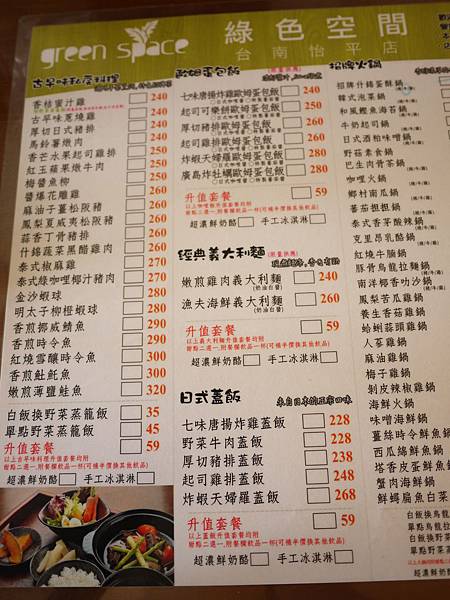 green space
綠色空間
台南怡平店
古早味私房料理
香桔蜜汁雞 240
古早味蔥燒雞 240
厚切日式豬排 240
馬鈴薯燉肉 240
香芒水果起司雞排 250
紅玉蘋果燉牛肉 250
梅醬魚柳 250
醬爆花雕雞 250
麻油子薑松阪豬 260
鳳梨夏威夷松阪豬 260
蒜香丁骨豬排 260
什錦蔬菜黑醋雞肉 260
泰式椒麻雞 270
泰式綠咖哩椰汁豬肉 270
金沙蝦球 280
明太子柳橙蝦球 280
香煎挪威鯖魚 290
香煎時令魚 290
紅燒雪釀時令魚 300
香煎魠魠魚 300
嫩煎薄鹽鮭魚 320
白飯換野菜蒸籠飯 35
單點野菜蒸籠飯 45
升值套餐 59
以上古早味料理升值套餐均附
甜點二選一,附餐飲品一杯(可補半價換其他飲品)
超濃鮮奶酪 手工冰淇淋
歐姆蛋包飯 (限量供應)
七味唐揚炸雞歐姆蛋包飯 240
起司可樂餅歐姆蛋包飯 240
厚切豬排歐姆蛋包飯 260
起司雞排歐姆蛋包飯 260
炸蝦天婦羅歐姆蛋包飯 280
廣島炸牡蠣歐姆蛋包飯 280
升值套餐 59
以上咖哩飯升值套餐均附
甜點二選一,附餐飲品一杯(可補半價換其他飲品)
超濃鮮奶酪 手工冰淇淋
經典義大利麵 (限量供應)
嫩煎雞肉義大利麵 240
(奶油白醬)
漁夫海鮮義大利麵 260
(奶油白醬)
升值套餐 59
以上義大利麵升值套餐均附
甜點二選一,附餐飲品一杯(可補半價換其他飲品)
超濃鮮奶酪 手工冰淇淋
日式蓋飯 來自日本的正宗口味
七味唐揚炸雞蓋飯 228
野菜牛肉蓋飯 228
厚切豬排蓋飯 238
起司雞排蓋飯 248
炸蝦天婦羅蓋飯 268
升值套餐 59
以上蓋飯升值套餐均附
甜點二選一,附餐飲品一杯(可補半價換其他飲品)
超濃鮮奶酪 手工冰淇淋
招牌火鍋
招牌什錦蛋餃鍋
韓式泡菜鍋
和風鰹魚海苔鍋
牛奶起司鍋
日式酒粕味噌鍋
野菇素食鍋
巴生肉骨茶鍋
咖哩火鍋
鄉村南瓜鍋
蕃茄担担鍋
泰式香茅酸辣鍋
克里昂乳酪鍋
紅燒牛腩鍋
豚骨烏龍拉麵鍋
南洋椰香叻沙鍋
鳳梨苦瓜雞鍋
養生香菇雞鍋
蛤蜊蒜頭雞鍋
人蔘雞鍋
麻油雞鍋
梅子雞鍋
剝皮辣椒雞鍋
海鮮火鍋
味噌海鮮鍋
薑絲時令鮮魚鍋
西瓜綿鮮魚鍋
塔香皮蛋鮮魚鍋
蟹肉海鮮鍋
鮮鱈扁魚白菜
白飯換烏龍
單點烏龍
白飯換野菜
單點野菜蒸